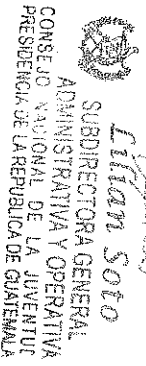 Lilian Soto
SUBDIRECTORA GENERAL
ADMINISTRATIVA Y OPERATIVA
CONSEJO NACIONAL DE LA JUVENTUD
PRESIDENCIA DE LA REPUBLICA DE GUATEMALA